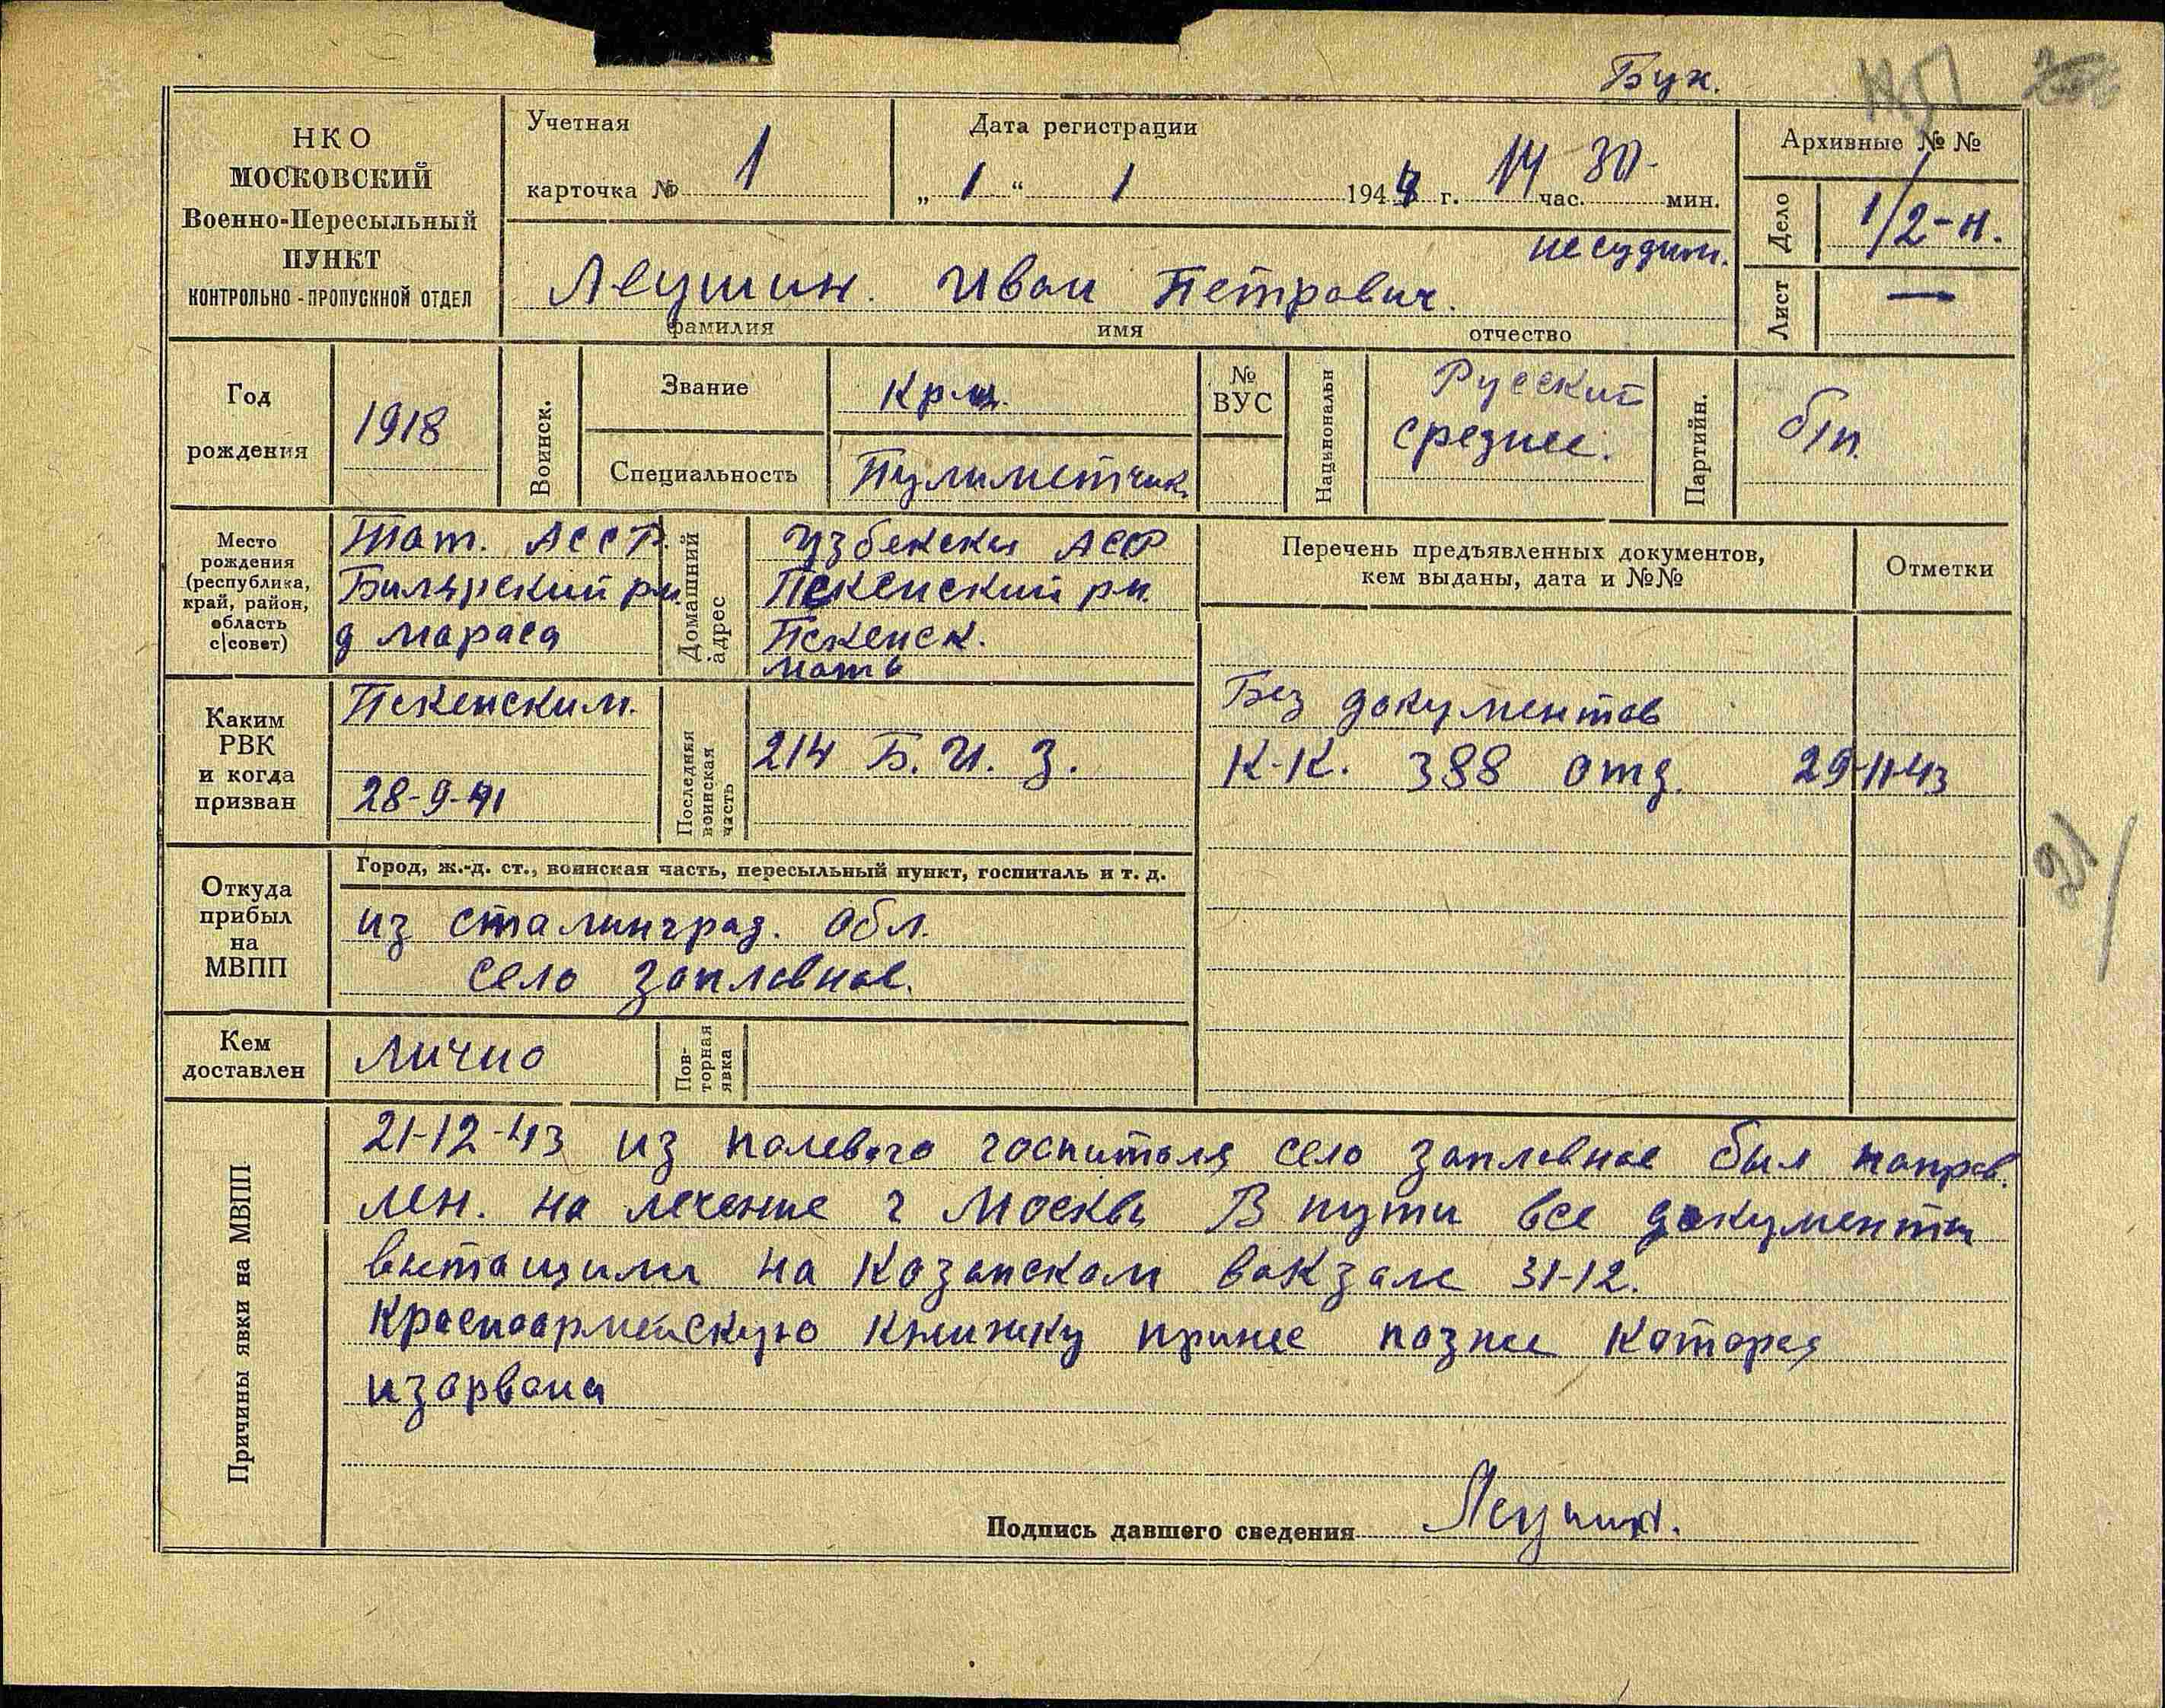 Бух.
НКО
МОСКОВСКИЙ
Военно-Пересыльный
ПУНКТ
КОНТРОЛЬНО-ПРОПУСКНОЙ ОТДЕЛ
Учетная
карточка № 1
Дата регистрации
„ 1 “ 1 1944 г. 14 час. 30 мин.
Архивные № №
Дело 1/2-н.
Лист —
несудим.
Леушин. Иван Петрович.
фамилия имя отчество
Год
рождения
1918
Воинск.
Звание
Кр-ц.
Специальность
Пулиметчик
№
ВУС
Национальн
Русский
среднее.
Партийн.
б/п.
Место
рождения
(республика,
край, район,
область
с|совет)
Тат. АССР.
Билярский рн.
д Мараса
Домашний
адрес
Узбекская АССР
Пскенский рн.
Пскенск.
мать
Перечень предъявленных документов,
кем выданы, дата и №№
Отметки
Без документов
К-К. 388 отд. 29-11-43
Каким
РВК
и когда
призван
Пскенским.
28-9-41
Последняя
воинская
часть
214 Б. И. З.
Откуда
прибыл
на
МВПП
Город, ж.-д. ст., воинская часть, пересыльный пункт, госпиталь и т. д.
из сталинград. обл.
село заплавное.
Кем
доставлен
лично
Пов-
торная
явка
Причины явки на МВПП
21-12-43 из полевого госпиталя село заплавное был направ.
лен. на лечение г Москва В пути все документы
вытащили на Казанском вокзале 31-12.
Красноармейскую книжку принес позже которая
изорвана
Подпись давшего сведения Леушин.